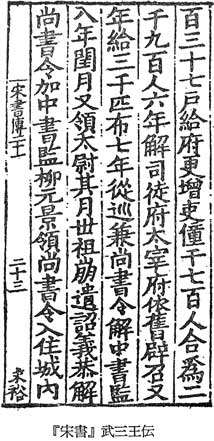 百三十七戶給府更增吏僮千七百人合為二
千九百人六年解司徒府太宰府依舊辟召又
年給三千匹布七年從巡兼尚書令解中書監
八年閏月又領太尉其月世祖崩遺詔義恭解
尚書令加中書監柳元景領尚書令入住城內
宋書傳二十一
二十三
朱裕
『宋書』武三王伝